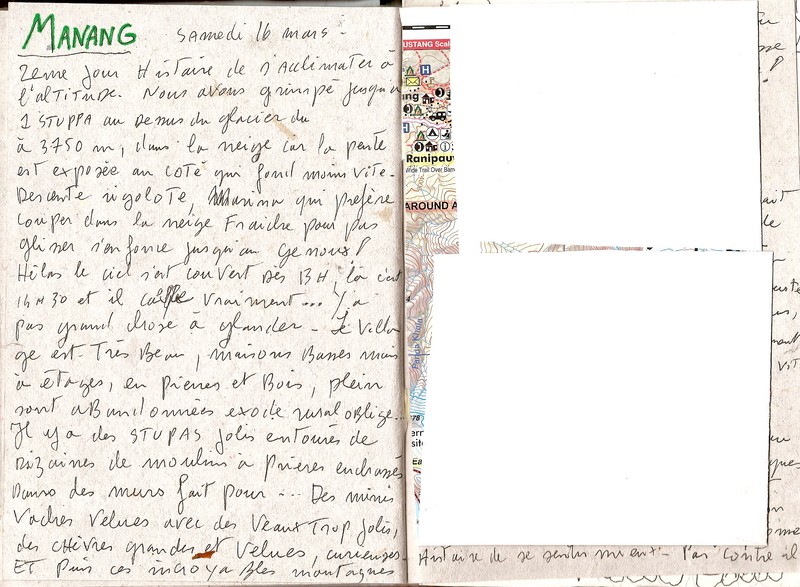 MANANG Samedi 16 mars -
2eme jour Histoire de s'acclimater à
l'altitude. Nous avons grimpé jusqu'à
1 STUPPA au dessus du glacier du
à 3750 m, dans la neige car la pente
est exposée au coté qui fond moins vite -
Descente rigolote, Marina qui préfère
couper dans la neige Fraiche pour pas
glisser s'enfonce jusqu'au genoux !
Hélas le ciel s'est couvert Dès 13H, là c'est
14H30 et il vraiment... Y a
pas grand chose à glander - Le Villa
ge est Très Beau, maisons Basses mais
à étages, en Pierres et Bois, plein
sont aBandonnées exode rural oblige...
Il y a des STUPAS jolis entourés de
Dizaines de moulins à Prières enchassés
Dans des murs fait pour ... Des minis
Vaches Velues avec des Veaux Trop jolis,
des chèvres grandes et Velues, curieuses -
ET Puis ces incroyaBles montagnes
USTANG Scal
ang
Ranipauw
Wide Trail Over Barr
AROUND A
Panda Khola
78
ern
site
Ea
Histoire de se sentir mieux - Par contre il